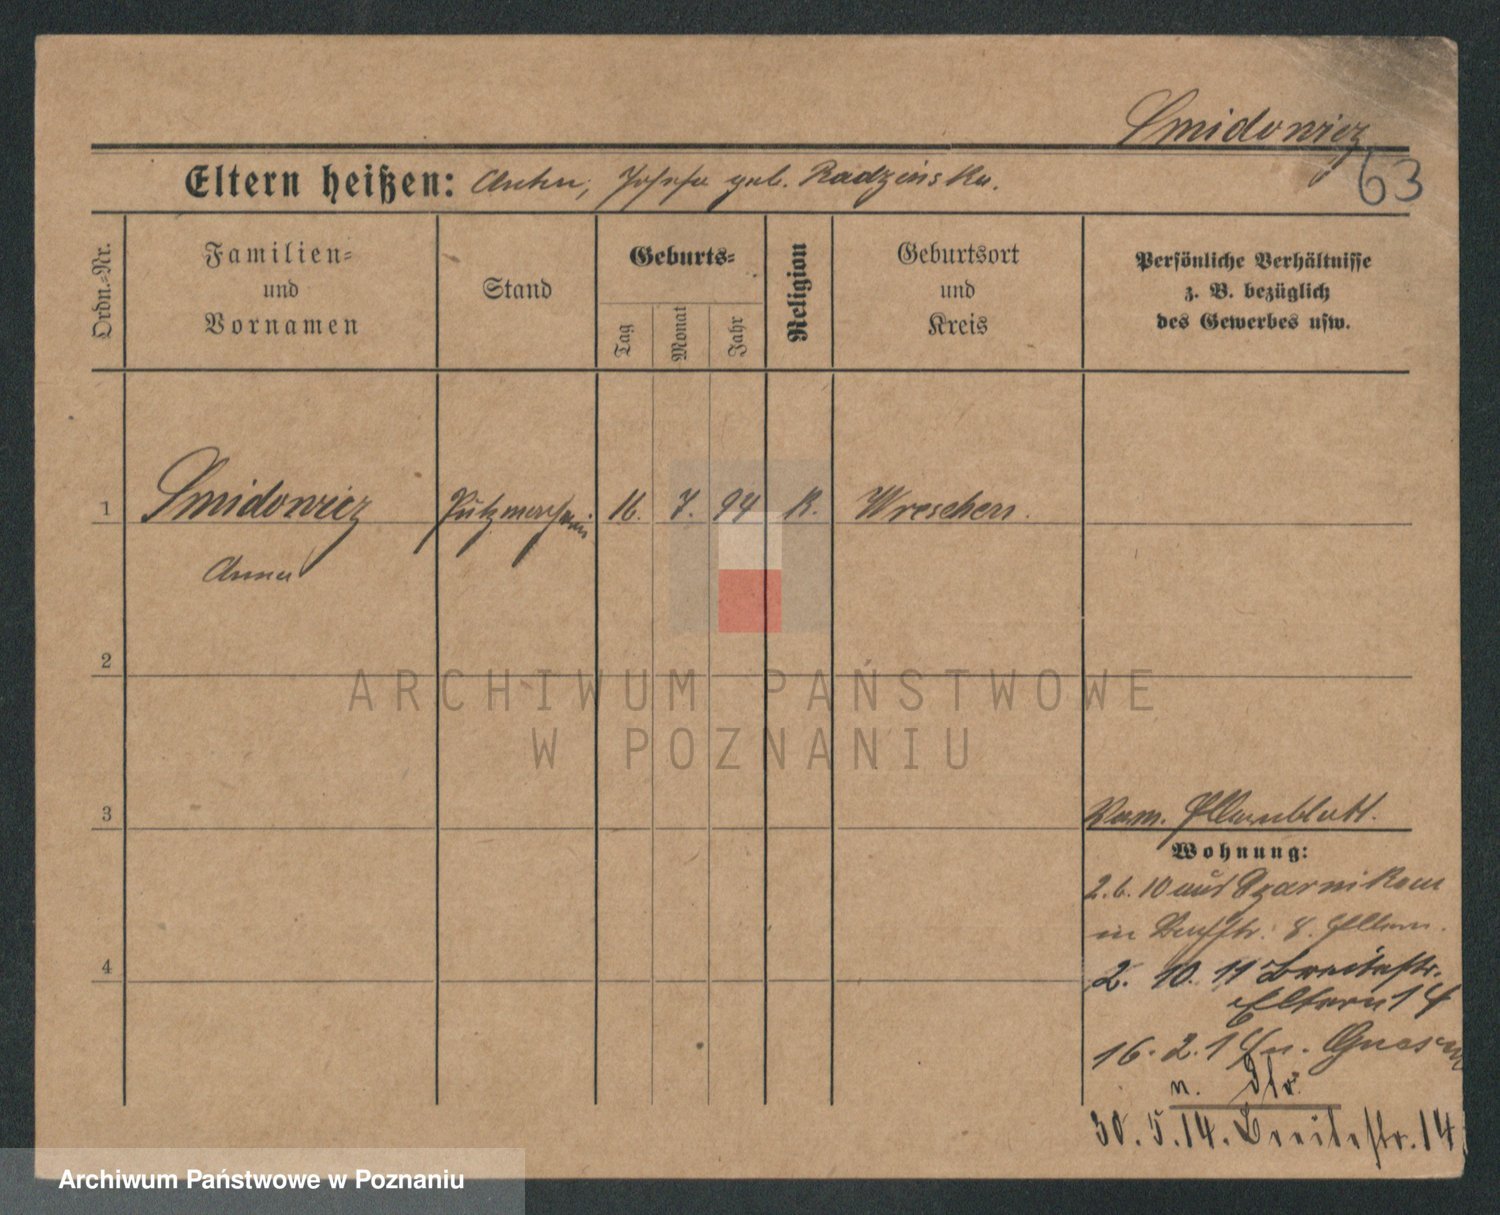 Smidowicz
63
Eltern heißen: Anton, Josefa geb. Radzinska.
Ordn.-Nr.
Familien-
und
Vornamen
Stand
Geburts-
Tag
Monat
Jahr
Religion
Geburtsort
und
Kreis
Persönliche Verhältnisse
z. B. bezüglich
des Gewerbes usw.
1 Smidowicz Putzmacherin 16. 7. 94 K. Wreschen.
Anna
2
3
4
Elternblatt.
Wohnung:
2.6.10 aus Czarnikau
in 8. Eltern.
2. 10. 11 Breitestr.
Eltern 14
16. 2. 14 n. Gnesen
n. Str.
30. 5. 14. Breitestr. 14
ARCHIWUM PAŃSTWOWE
W POZNANIU
Archiwum Państwowe w Poznaniu